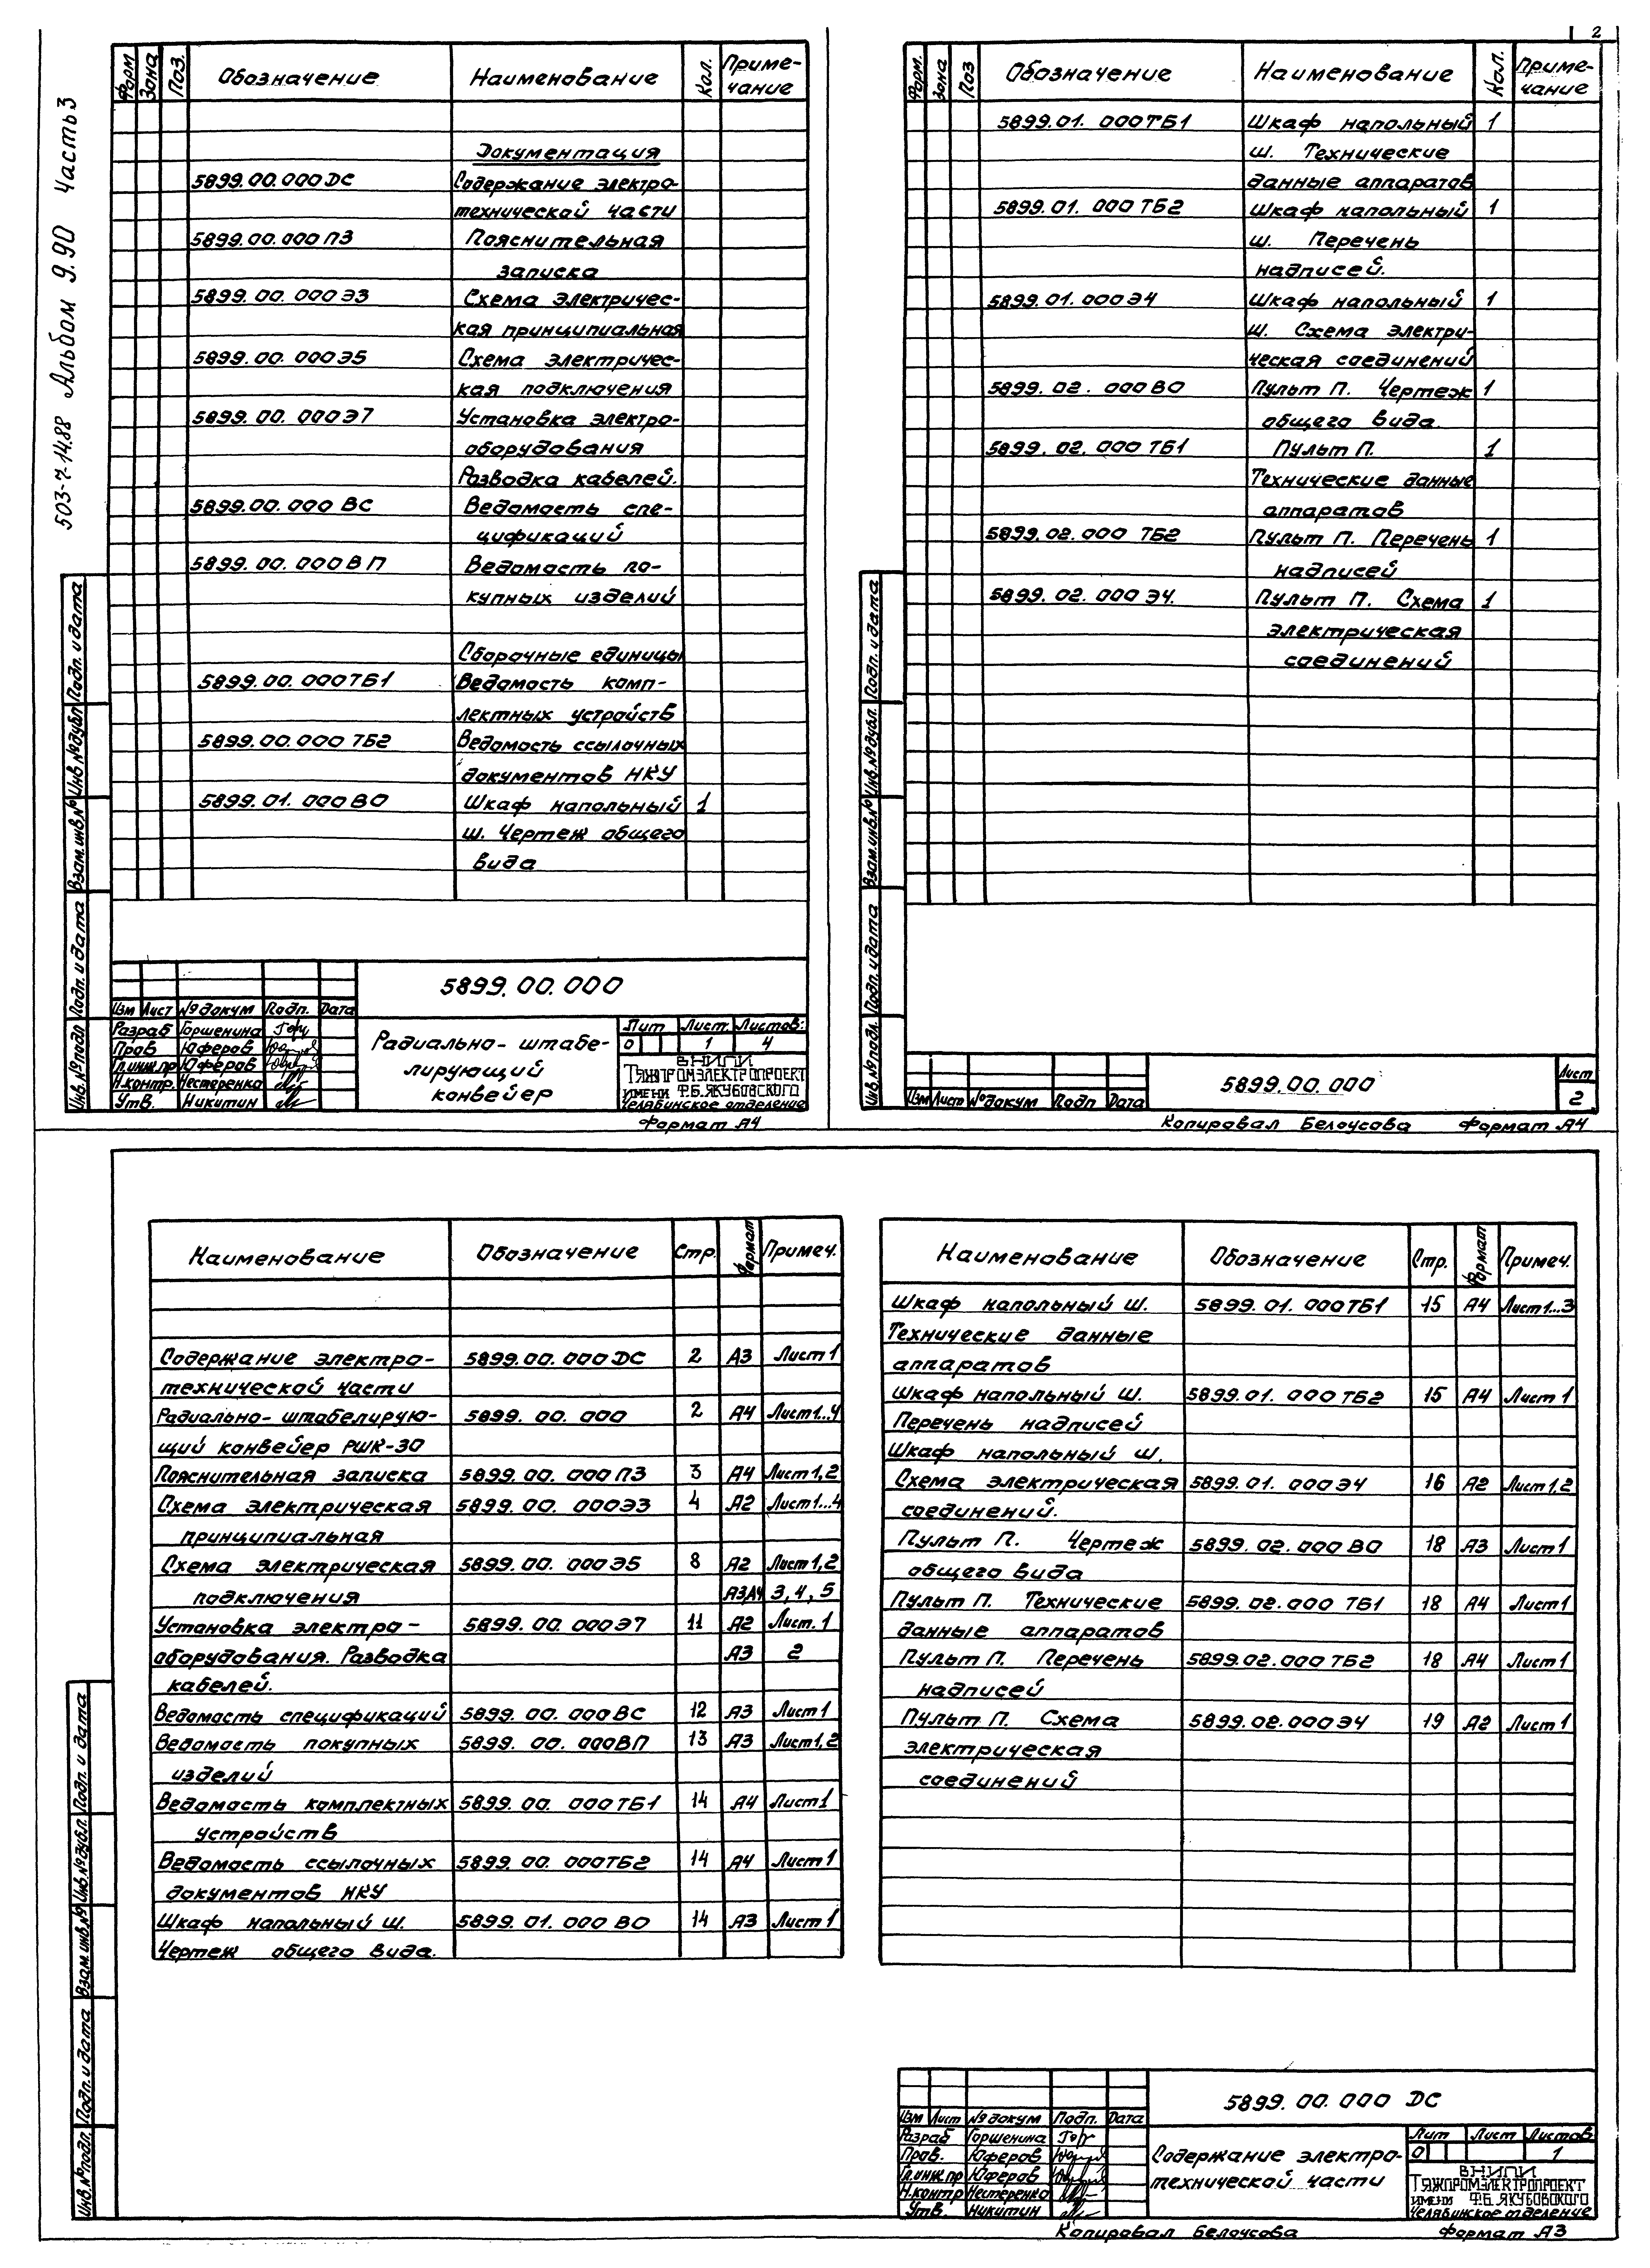 2
503-7-14.88 Альбом 9.90 Часть 3
Форм. Зона Поз. Обозначение Наименование Кол. Приме-
чание
Документация
5899.00.000 ДС Содержание электро-
технической части
5899.00.000 ПЗ Пояснительная
записка
5899.00.000 Э3 Схема электричес-
кая принципиальная
5899.00.000 Э5 Схема электричес-
кая подключения
5899.00.000 Э7 Установка электро-
оборудования
Разводка кабелей.
5899.00.000 ВС Ведомость спе-
цификаций
5899.00.000 ВП Ведомость по-
купных изделий
Сборочные единицы
5899.00.000 ТБ1 Ведомость комп-
лектных устройств
5899.00.000 ТБ2 Ведомость ссылочных
документов НКУ
5899.01.000 ВО Шкаф напольный 1
Ш. Чертеж общего
вида
Инв.№подл Подп. и дата Взам.инв.№ Инв.№дубл Подп. и дата
5899.00.000
Изм Лист №докум Подп. Дата
Разраб Горшенина
Пров Юферов
Гл.инж.пр Юферов
Н.контр. Нестеренко
Утв. Никитин
Радиально-штабе-
лирующий
конвейер
Лит Лист Листов:
О 1 4
ВНИПИ
ТЯЖПРОМЭЛЕКТРОПРОЕКТ
ИМЕНИ Ф.Б.ЯКУБОВСКОГО
Челябинское отделение
Формат А4
Форм. Зона Поз Обозначение Наименование Кол. Приме-
чание
5899.01.000 ТБ1 Шкаф напольный 1
Ш. Технические
данные аппаратов
5899.01.000 ТБ2 Шкаф напольный 1
Ш. Перечень
надписей.
5899.01.000 Э4 Шкаф напольный 1
Ш. Схема электри-
ческая соединений
5899.02.000 ВО Пульт П. Чертеж 1
общего вида.
5899.02.000 ТБ1 Пульт П. 1
Технические данные
аппаратов
5899.02.000 ТБ2 Пульт П. Перечень 1
надписей
5899.02.000 Э4. Пульт П. Схема 1
электрическая
соединений
Инв.№подл. Подп. и дата Взам.инв.№ Инв.№дубл. Подп. и дата
Изм Лист №докум Подп Дата
5899.00.000
Лист
2
Копировал Белоусова Формат А4
Наименование Обозначение Стр. Формат Примеч.
Содержание электро- 5899.00.000 ДС 2 А3 Лист 1
технической части
Радиально-штабелирую- 5899.00.000 2 А4 Лист1...4
щий конвейер РШК-30
Пояснительная записка 5899.00.000 ПЗ 3 А4 Лист 1,2
Схема электрическая 5899.00.000Э3 4 А2 Лист1...4
принципиальная
Схема электрическая 5899.00.000Э5 8 А2 Лист 1,2
подключения А3,А4 3, 4, 5
Установка электро- 5899.00.000Э7 11 А2 Лист. 1
оборудования. Разводка А3 2
кабелей.
Ведомость спецификаций 5899.00.000 ВС 12 А3 Лист 1
Ведомость покупных 5899.00.000ВП 13 А3 Лист 1,2
изделий
Ведомость комплектных 5899.00.000ТБ1 14 А4 Лист 1
устройств
Ведомость ссылочных 5899.00.000ТБ2 14 А4 Лист 1
документов НКУ
Шкаф напольный Ш. 5899.01.000 ВО 14 А3 Лист 1
Чертеж общего вида.
Наименование Обозначение Стр. Формат Примеч.
Шкаф напольный Ш. 5899.01.000ТБ1 15 А4 Лист1...3
Технические данные
аппаратов
Шкаф напольный Ш. 5899.01.000 ТБ2 15 А4 Лист 1
Перечень надписей
Шкаф напольный Ш.
Схема электрическая 5899.01.000 Э4 16 А2 Лист 1,2
соединений.
Пульт П. Чертеж 5899.02.000 ВО 18 А3 Лист 1
общего вида
Пульт П. Технические 5899.02.000 ТБ1 18 А4 Лист 1
данные аппаратов
Пульт П. Перечень 5899.02.000 ТБ2 18 А4 Лист 1
надписей
Пульт П. Схема 5899.02.000 Э4 19 А2 Лист 1
электрическая
соединений
Инв.№подл. Подп. и дата Взам.инв.№ Инв.№дубл. Подп. и дата
5899.00.000 ДС
Изм Лист №докум Подп. Дата
Разраб Горшенина
Пров. Юферов
Гл.инж.пр Юферов
Н.контр Нестеренко
Утв. Никитин
Содержание электро-
технической части
Лит Лист Листов
О 1
ВНИПИ
ТЯЖПРОМЭЛЕКТРОПРОЕКТ
ИМЕНИ Ф.Б.ЯКУБОВСКОГО
Челябинское отделение
Копировал Белоусова Формат А3